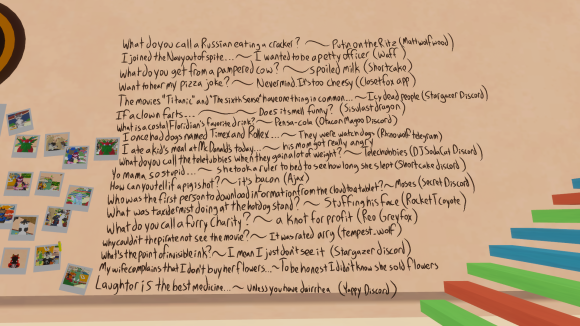 What do you call a Russian eating a cracker? ~ Putin on the Ritz (Mattwolfwood)
I joined the Navy out of spite... ~ I wanted to be a petty officer (Woff)
What do you get from a pampered cow? ~ spoiled milk (Shortcake)
Want to hear my pizza joke? ~ Nevermind. It's too cheesy (Closetfox app)
The movies "Titanic" and "The sixth Sense" have one thing in common... ~ Icy dead people (Stargazer Discord)
If a clown farts... ~ Does it smell funny? (Sisulostdragon)
What is a coastal Floridian's favorite drink? ~ Pensa-cola (Otacon Magoo Discord)
I once had dogs named Timex and Rollex... ~ They were watch dogs (Telegram)
I ate a kid's meal at McDonalds today... ~ his mom got really angry
What do you call the teletubbies when they gain a lot of weight? ~ Telechubbies (DJ SodaCat Discord)
Yo mama, so stupid... ~ she took a ruler to bed to see how long she slept (Shortcake discord)
How can you tell if a pig is hot? ~ it's bacon (Ajax)
Who was the first person to download information from the cloud to a tablet? ~ Moses (Secret Discord)
What was taxdermist doing at the hotdog stand? ~ Stuffing his face (PockeT Coyote)
What do you call a Furry Charity? ~ a knot for profit (Reo Greyfox)
Why couldn't the pirate not see the movie? ~ It was rated arrg (tempest_wof)
What's the point of invisible ink? ~ I mean I just don't see it (Stargazer discord)
My wife complains that I don't buy her flowers... ~ To be honest I didn't know she sold flowers
Laughtor is the best medicine... ~ unless you have dairrhea (Yappy Discord)